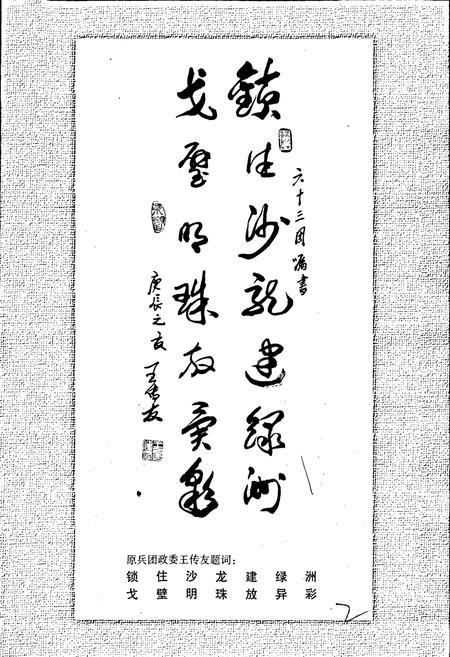 六十三团嘱书
锁住沙龙建绿洲
戈壁明珠放异彩
庚辰元夜
王传友
原兵团政委王传友题词：
锁住沙龙建绿洲
戈壁明珠放异彩